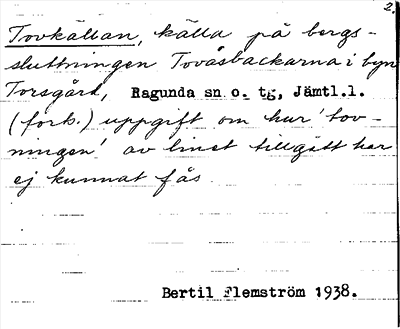 2.
Tovkällan, källa på bergs-
sluttningen Tovåsbackarna i byn
Torsgård, Ragunda sn o. tg, Jämtl.l.
(förk.) uppgift om hur 'tov-
ningen' av linet tillgått har
ej kunnat fås.
Bertil Flemström 1938.